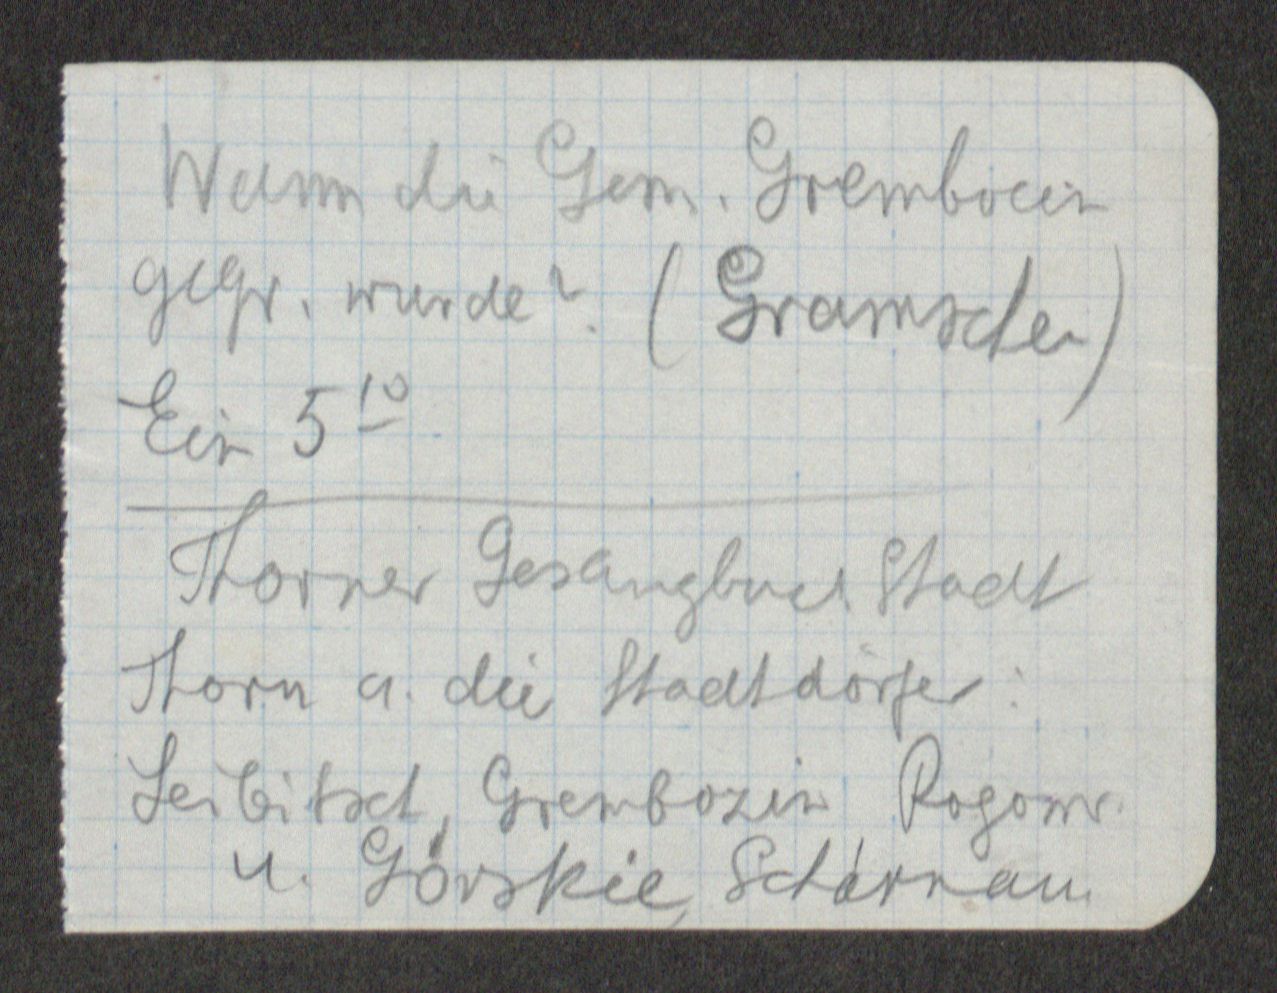 Wann die Gem. Grembocin
gegr. wurde? (Gramschen)
Ein 5 10
Thorner Gesangbuch Stadt
Thorn u. die Stadtdörfer:
Leibitsch, Grembozin Rogow.
u. Górskie, Scharnau